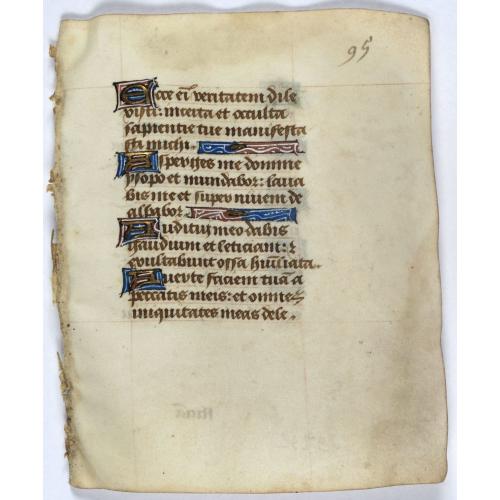 95
Ecce eī veritatem dile
xisti: incerta et occulta
sapientie tue manifesta
sti michi.
Asperges me domine
ysopo et mundabor: laua
bis me et super niuem de
albabor.
Auditui meo dabis
gaudium et leticiam: z
exultabunt ossa huīliata.
Auerte faciem tuā a
peccatis meis: et omnes
iniquitates meas dele.